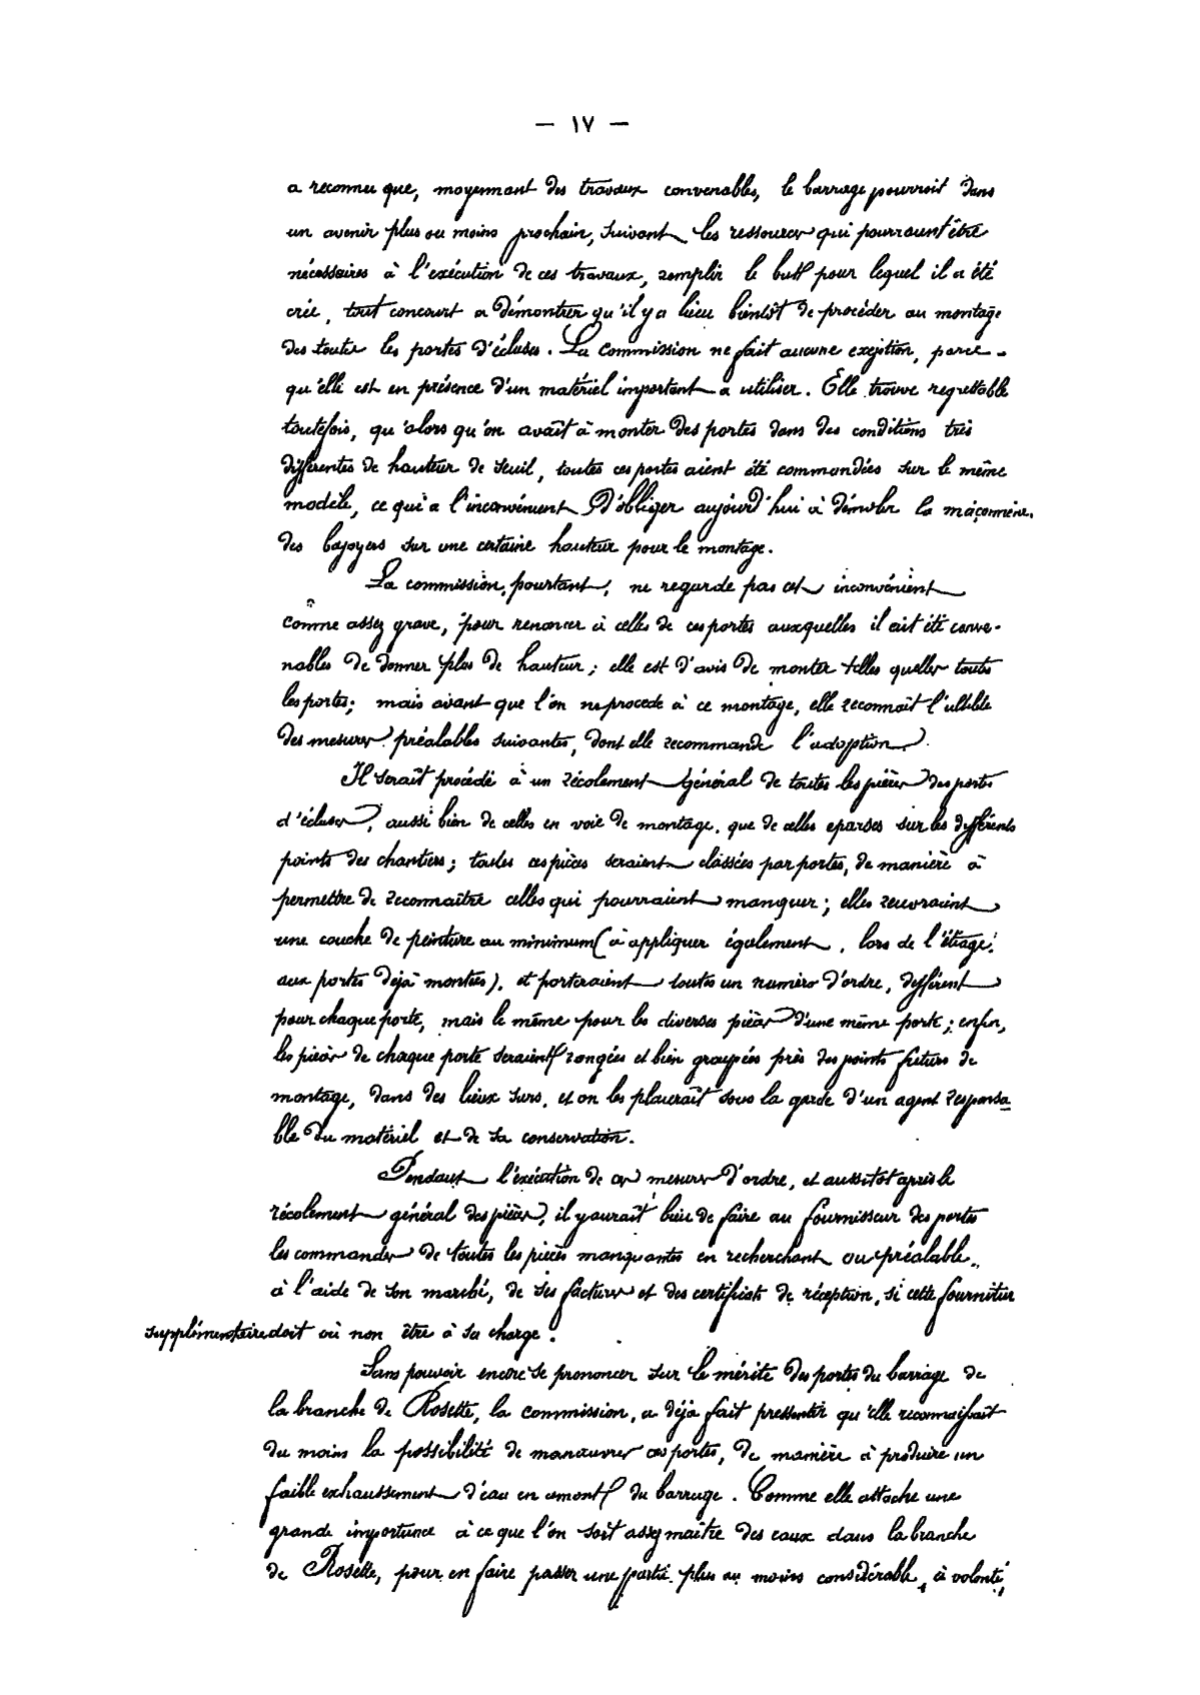 — ١٧ —
a reconnu que, moyennant des travaux convenables, le barrage pourrait dans
un avenir plus ou moins prochain, suivant les ressources qui pourraient être
nécessaires à l'exécution de ces travaux, remplir le but pour lequel il a été
créé, tout concourt a démontrer qu'il y a lieu bientôt de procéder au montage
des toutes les portes d'écluses. La Commission ne fait aucune exeption, parce-
qu'elle est en présence d'un matériel important a utiliser. Elle trouve regrettable
toutefois, qu'alors qu'on avait à monter des portes dans des conditions très
différentes de hauteur de seuil, toutes ces portes aient été commandées sur le même
modèle, ce qui a l'inconvénient d'obliger aujourd'hui à démolir la maçonnerie
des bajoyers sur une certaine hauteur pour le montage.
La commission, pourtant, ne regarde pas cet inconvénient
comme assez grave, pour renoncer à celles de ces portes auxquelles il eût été conve-
nables de donner plus de hauteur; elle est d'avis de monter telles quelles toutes
les portes; mais avant que l'on ne procède à ce montage, elle reconnaît l'utilité
des mesures préalables suivantes, dont elle recommande l'adoption.
Il serait procédé à un récolement général de toutes les pièces des portes
d'écluses, aussi bien de celles en voie de montage, que de celles eparses sur les différents
points des chantiers; toutes ces pièces seraient classées par portes, de manière à
permettre de reconnaître celles qui pourraient manquer; elles recevraient
une couche de peinture au minimum (à appliquer également, lors de l'étiage,
aux portes déjà montées), et porteraient toutes un numéro d'ordre, différent
pour chaque porte, mais le même pour les diverses pièces d'une même porte; enfin,
les pièces de chaque porte seraient rangées et bien groupées près des points futurs de
montage, dans des lieux surs, et on les placerait sous la garde d'un agent responsa-
ble du matériel et de sa conservation.
Pendant l'exécution de ces mesures d'ordre, et aussitôt après le
récolement général des pièces, il y aurait lieu de faire au fournisseur des portes
les commandes de toutes les pièces manquantes en recherchant au préalable,
à l'aide de son marché, de ses factures et des certificats de réception, si cette fourniture
supplémentaire doit où non être à sa charge.
Sans pouvoir encore se prononcer sur le mérite des portes du barrage de
la branche de Rosette, la commission, a déjà fait pressentir qu'elle reconnaissait
du moins la possibilité de manœuvrer ces portes, de manière à produire un
faible exhaussement d'eau en amont du barrage. Comme elle attache une
grande importance à ce que l'on soit assez maître des eaux dans la branche
de Rosette, pour en faire passer une partie plus ou moins considérable, à volonté,